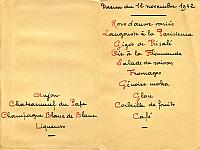 Menu du 12 novembre 1942
Hors d'œuvre variés
Langouste à la Parisienne
Gigot de Présalé
Oie à la Flamande
Salade de saison
Fromages
Génoise moka
Glace
Corbeille de fruits
Café
Anjou
Chateauneuf du Pape
Champagne Blanc de Blanc
Liqueurs